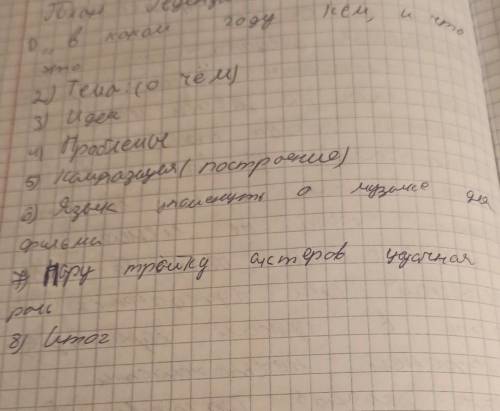 План Рецензии
1) в каком году кем, и что
это
2) Тема: (о чём)
3) Идея
4) Проблемы
5) Кампазиция (построение)
6) Язык упомянуть о музыке для
фильма
7) Пару тройку актеров удачная
роль
8) Итог